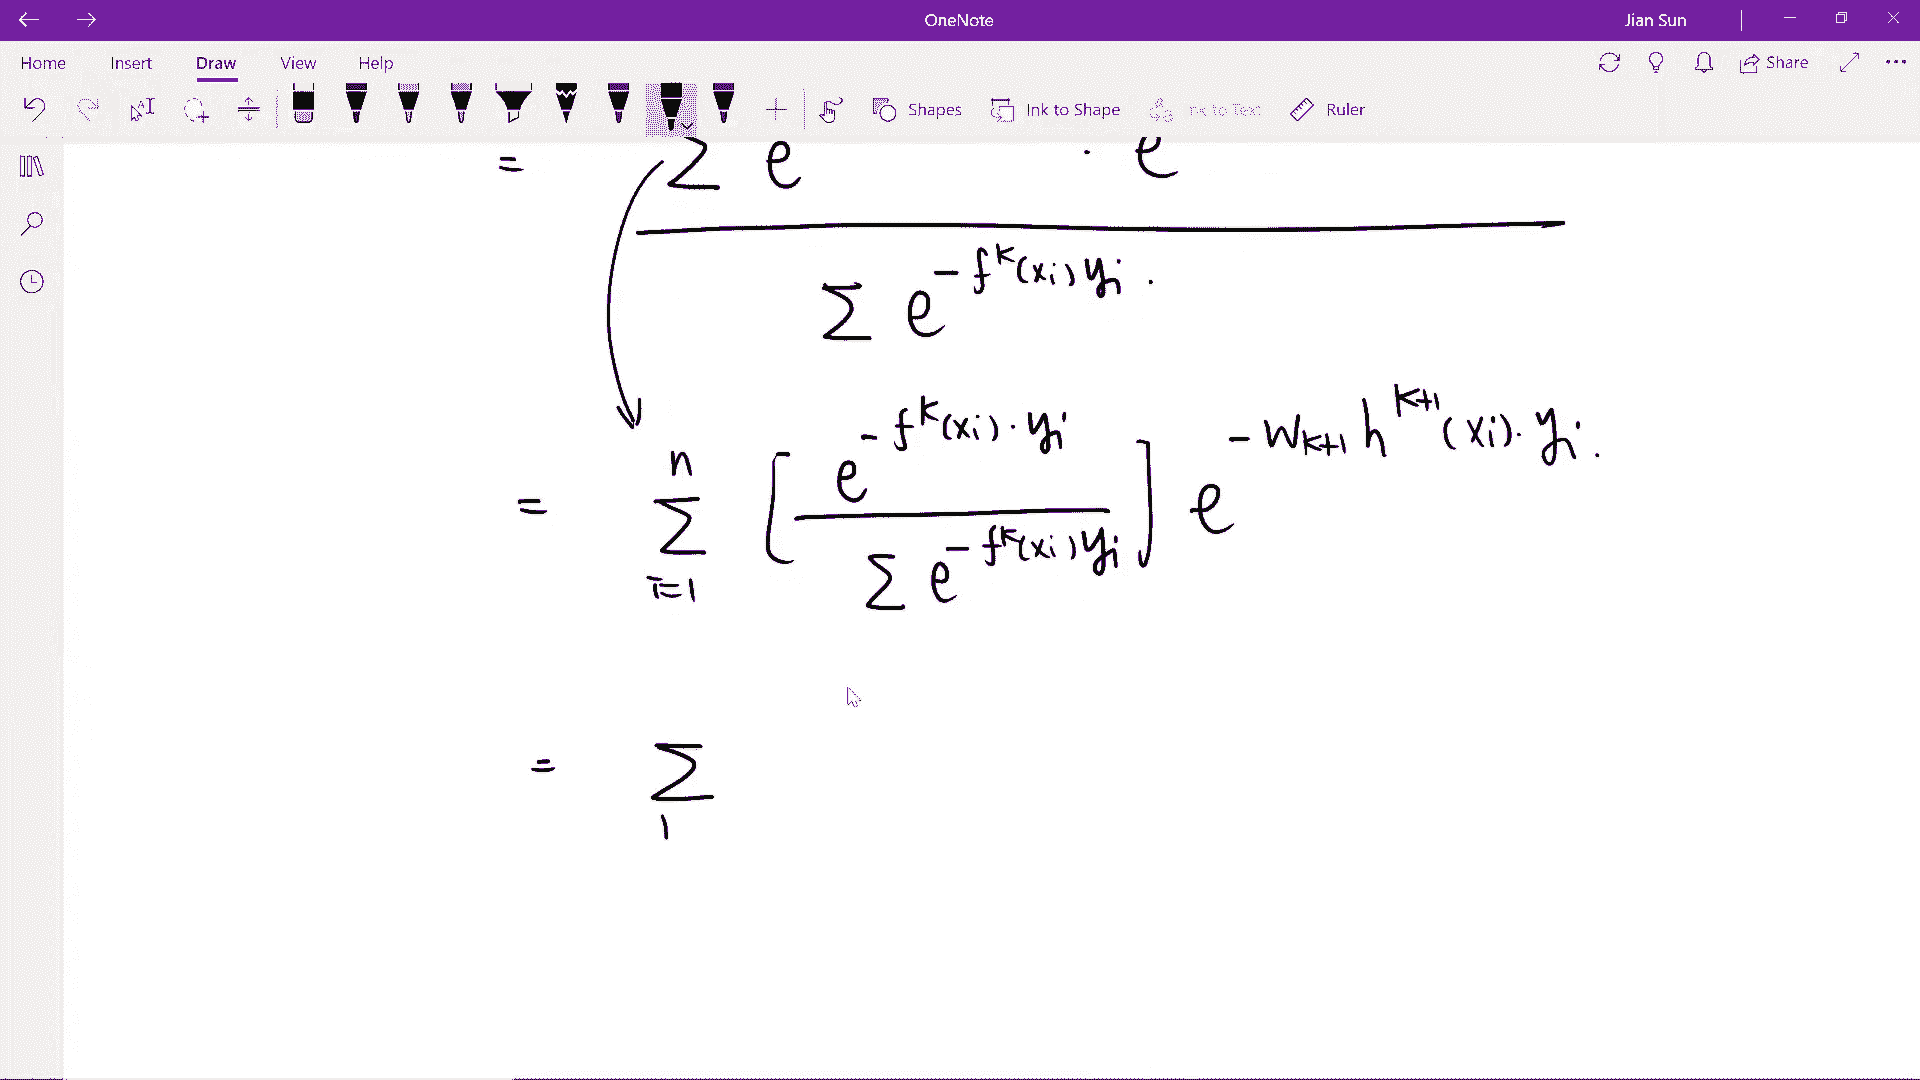 OneNote
Jian Sun
Home Insert Draw View Help
Share
Shapes Ink to Shape Ink to Text Ruler
= Σ e · e
Σ e^{-f^k(xi) yi} .
= Σ_{i=1}^{n} [ e^{-f^k(xi)·yi} / Σ e^{-f^k(xi) yi} ] e^{-W_{k+1} h^{k+1}(xi)·yi} .
= Σ